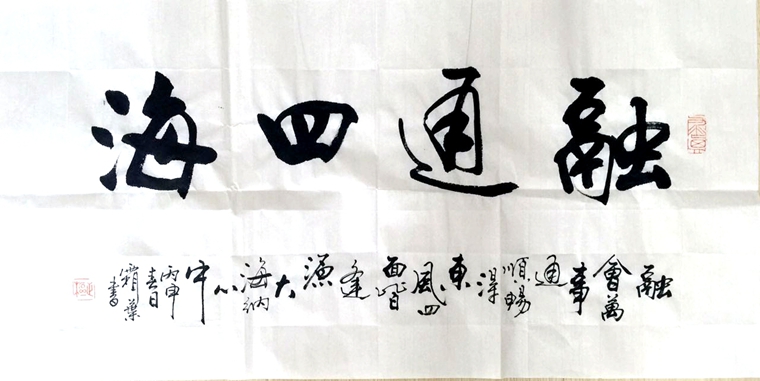 融通四海
融會萬事通順暢淂東風四面皆逢源大海納心中丙申春日霜葉書